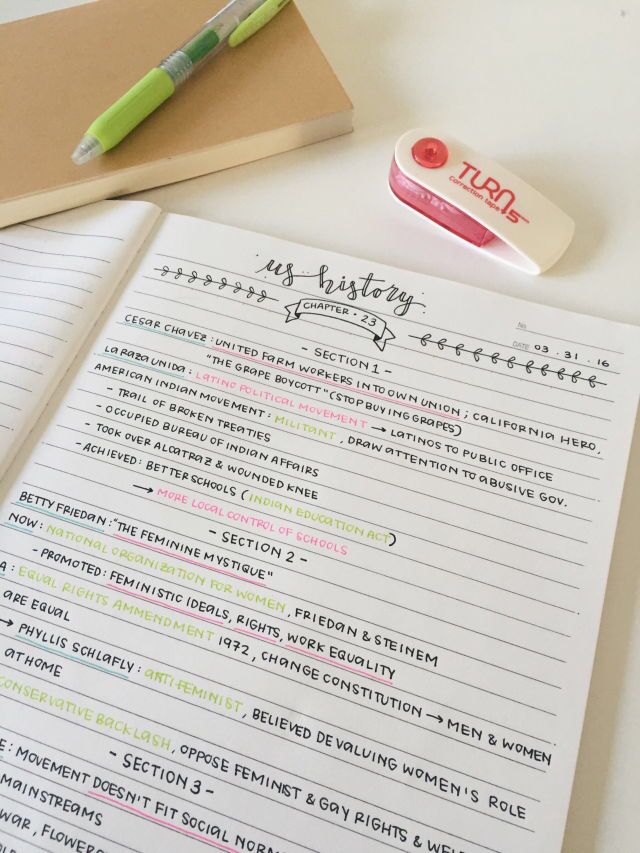 TURN
Correction tape 5
us history
CHAPTER • 23
No.
DATE 03 . 31 . 16
- SECTION 1 -
CESAR CHAVEZ : UNITED FARM WORKERS INTO OWN UNION ; CALIFORNIA HERO,
"THE GRAPE BOYCOTT" (STOP BUYING GRAPES)
LA RAZA UNIDA : LATINO POLITICAL MOVEMENT → LATINOS TO PUBLIC OFFICE
AMERICAN INDIAN MOVEMENT : MILITANT , DRAW ATTENTION TO ABUSIVE GOV.
- TRAIL OF BROKEN TREATIES
- OCCUPIED BUREAU OF INDIAN AFFAIRS
- TOOK OVER ALCATRAZ & WOUNDED KNEE
- ACHIEVED : BETTER SCHOOLS (INDIAN EDUCATION ACT)
→ MORE LOCAL CONTROL OF SCHOOLS
- SECTION 2 -
BETTY FRIEDAN : "THE FEMININE MYSTIQUE"
NOW : NATIONAL ORGANIZATION FOR WOMEN , FRIEDAN & STEINEM
- PROMOTED : FEMINISTIC IDEALS, RIGHTS, WORK EQUALITY
A : EQUAL RIGHTS AMMENDMENT 1972 , CHANGE CONSTITUTION → MEN & WOMEN
ARE EQUAL
→ PHYLLIS SCHLAFLY : ANTI FEMINIST , BELIEVED DEVALUING WOMEN'S ROLE
AT HOME
CONSERVATIVE BACKLASH, OPPOSE FEMINIST & GAY RIGHTS &
- SECTION 3 -
: MOVEMENT DOESN'T FIT SOCIAL
MAINSTREAMS
WAR,